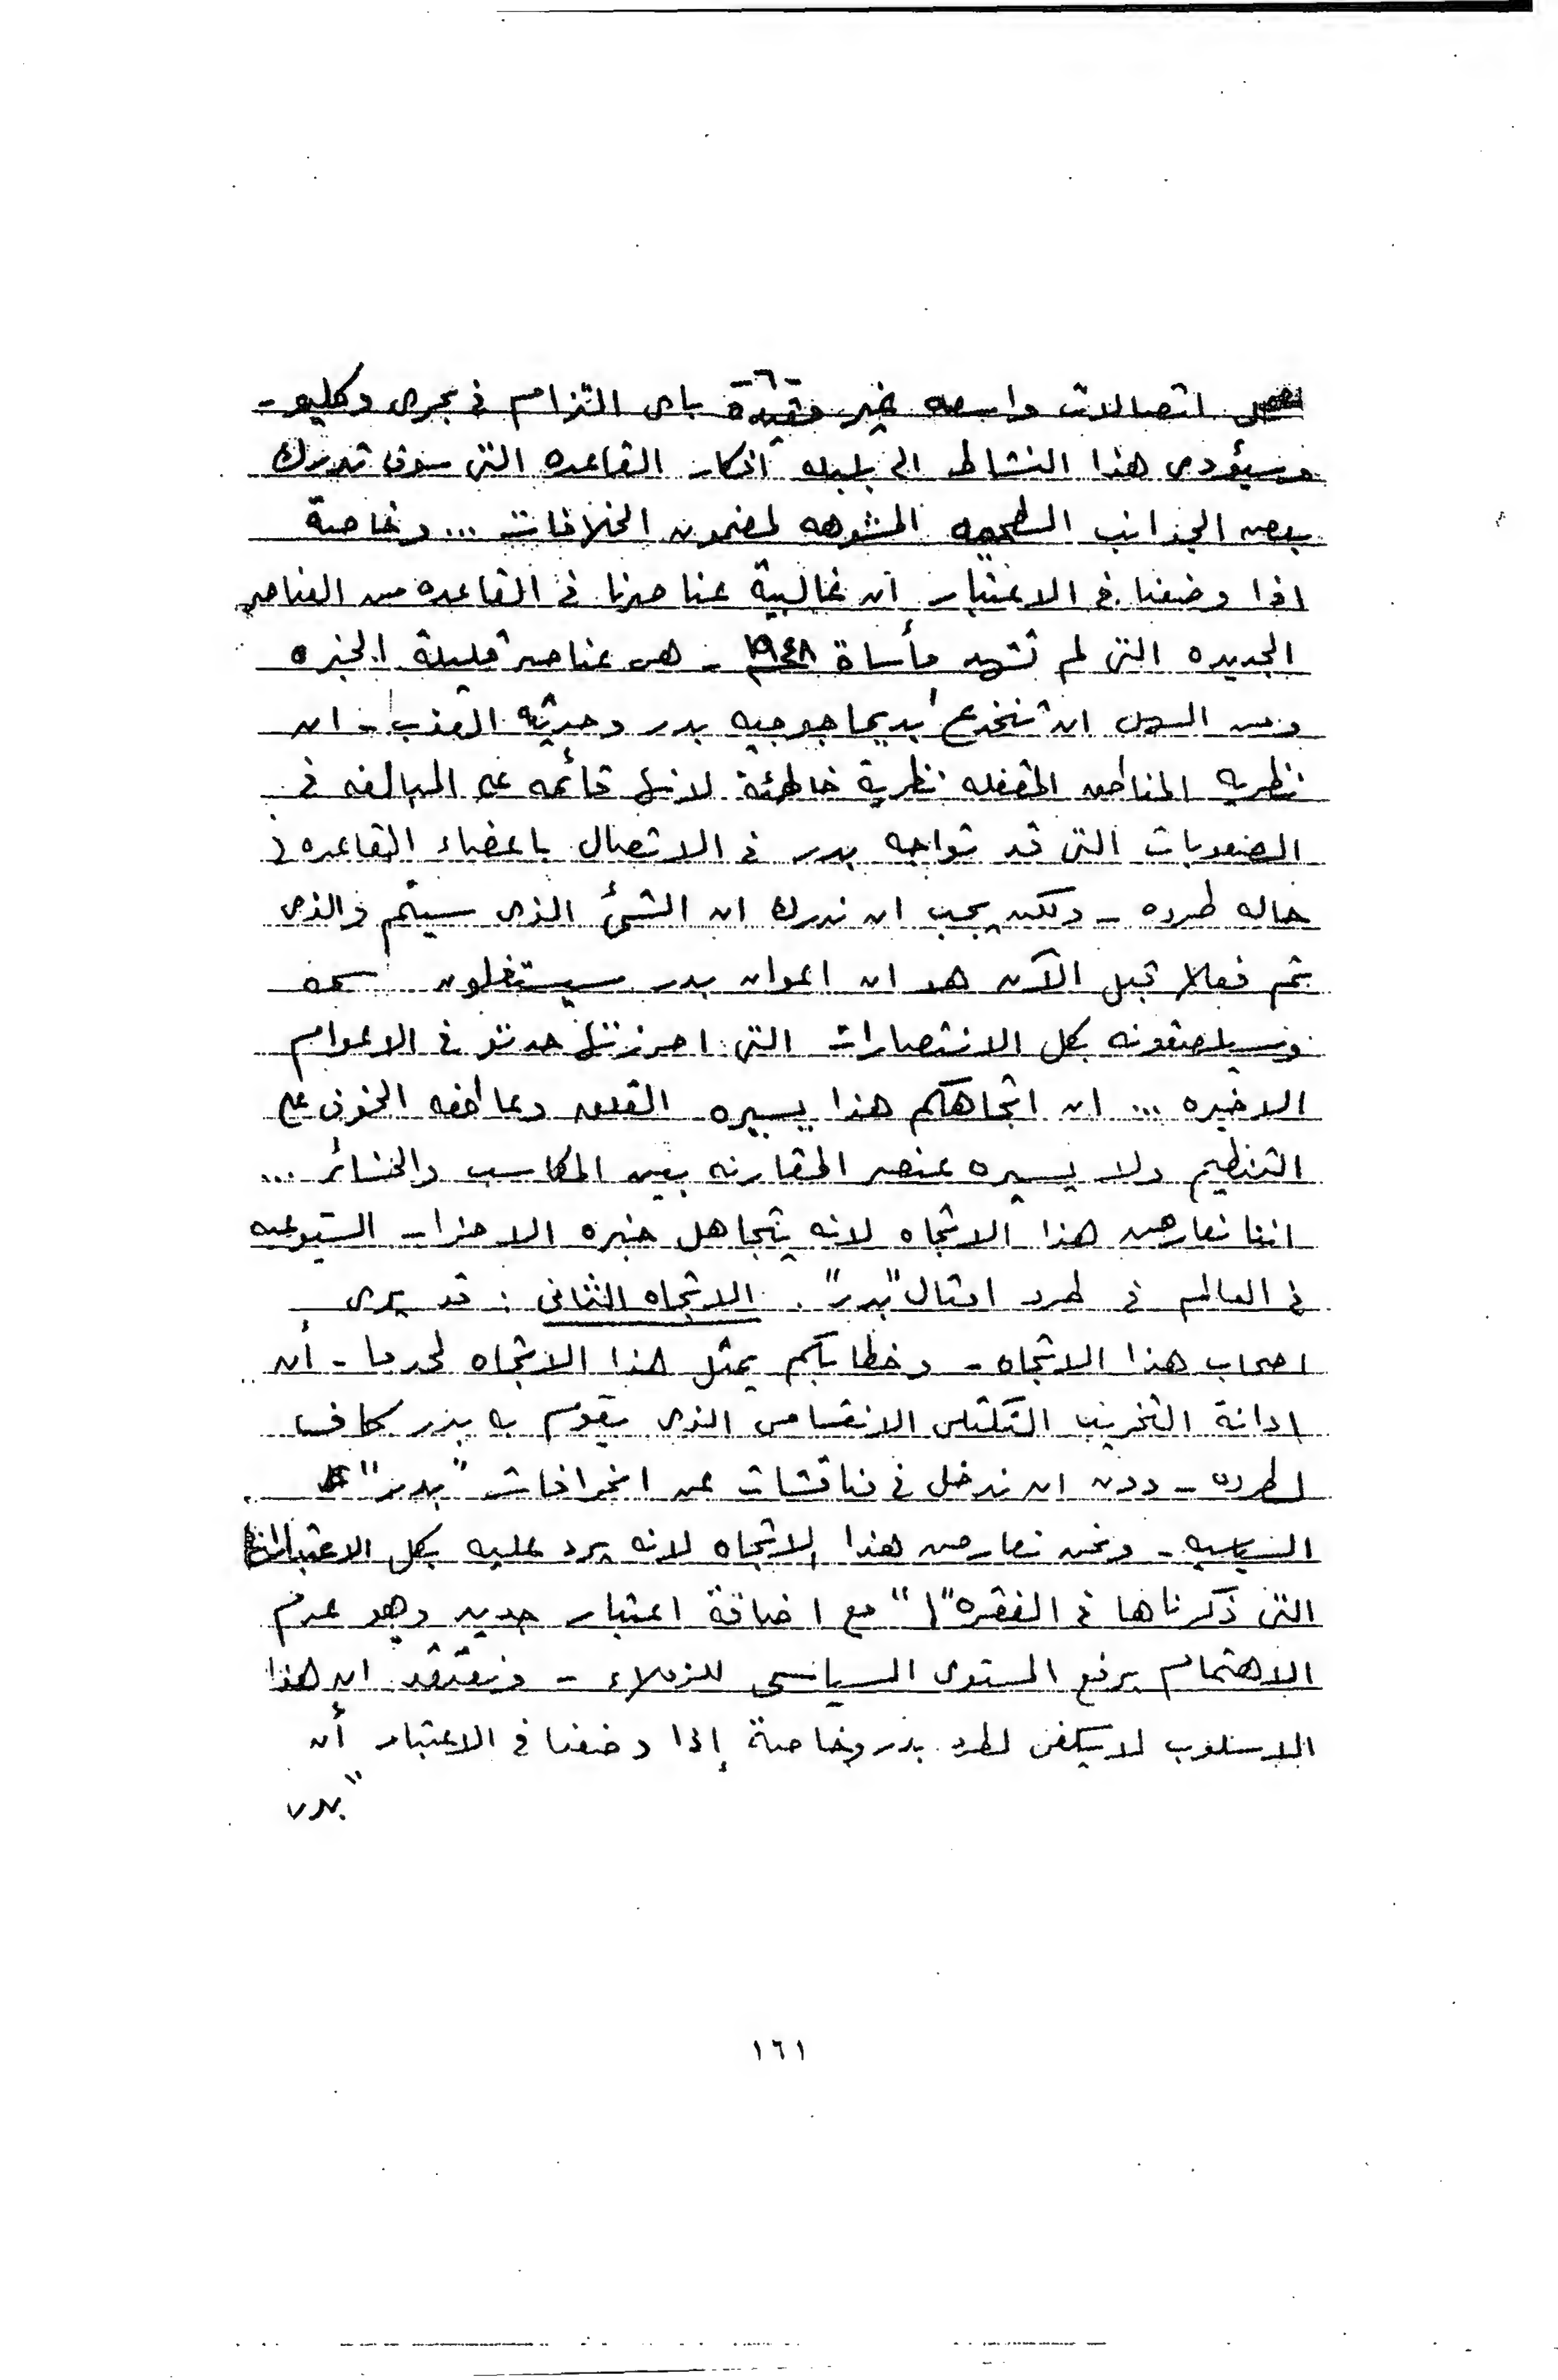 -٦-
اتصالات واسعه غير مقيدة باى التزام فى بحرى وكليو -
وسيؤدى هذا النشاط الى بلبله افكار القاعده التى سوف تدرك
بعض الجوانب السطحيه المشوهه لمضمون الخلافات ... وخاصة
اذا وضعنا فى الاعتبار أن غالبية عناصرنا فى القاعده من العناصر
الجديده التى لم تشهد مأساة ١٩٤٨ - هى عناصر قليلة الخبره
ومن السهل ان تنخدع بديماجوجيه بدر وحديثه العذب - ان
نظريه المناطق المقفله نظرية خاطئة لانها قائمه على المبالغه فى
الصعوبات التى قد تواجه بدر فى الاتصال باعضاء القاعده فى
حاله طرده - ولكن يجب ان ندرك ان الشئ الذى سيتم والذى
تم فعلا قبل الآن هو ان اعوان بدر سيستغلون اسمه
وسيلصقونه بكل الانتصارات التى احرزتها حدتو فى الاعوام
الاخيره ... ان اتجاهكم هذا يسيره القلق وعاطفه الخوف على
التنظيم ولا يسيره عنصر المقارنه بين المكاسب والخسائر ...
اننا نعارض هذا الاتجاه لانه يتجاهل خبره الاحزاب الشيوعيه
فى العالم فى طرد امثال "بدر" . الاتجاه الثانى : قد يرى
اصحاب هذا الاتجاه - وخطابكم يمثل هذا الاتجاه لحد ما - أن
ادانة التخريب التكتلى الانقسامى الذى يقوم به بدر كاف
لطرده - دون ان ندخل فى مناقشات عن انحرافات "بدر"
السياسيه - ونحن نعارض هذا الاتجاه لانه يرد عليه بكل الاعتبارات
التى ذكرناها فى الفقره "١" مع اضافة اعتبار جديد وهو عدم
الاهتمام برفع المستوى السياسى للزملاء - ونعتقد ان هذا
الاسلوب لا يكفى لطرد بدر وخاصة إذا وضعنا فى الاعتبار أن
"بدر
١٦١